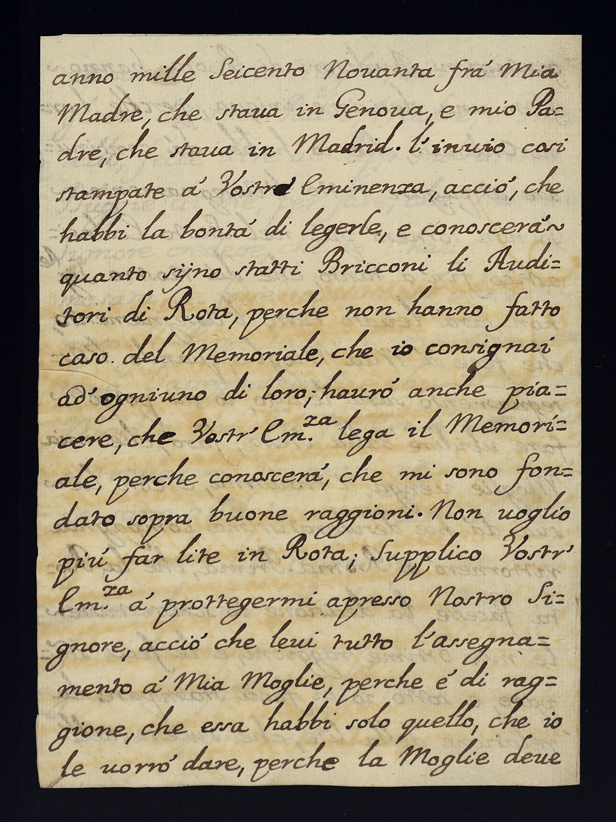 anno mille Seicento Nouanta frá Mia
Madre, che staua in Genoua, e mio Pa=
dre, che staua in Madrid. l'inuio cosi
stampate á Vostra Eminenza, acció, che
habbi la bontá di legerle, e conoscerá~
quanto sijno statti Bricconi li Audi=
tori di Rota, perche non hanno fatto
caso del Memoriale, che io consignai
ad' ogniuno di loro; hauró anche pia=
cere, che Vostr' Em.za lega il Memori=
ale, perche conoscerá, che mi sono fon=
dato sopra buone raggioni. Non uoglio
piú far lite in Rota; Supplico Vostr'
Em.za á prottegermi apresso Nostro Si=
gnore, acció che leui tutto l'assegna=
mento á Mia Moglie, perche é di rag=
gione, che essa habbi solo quello, che io
le uorró dare, perche la Moglie deue